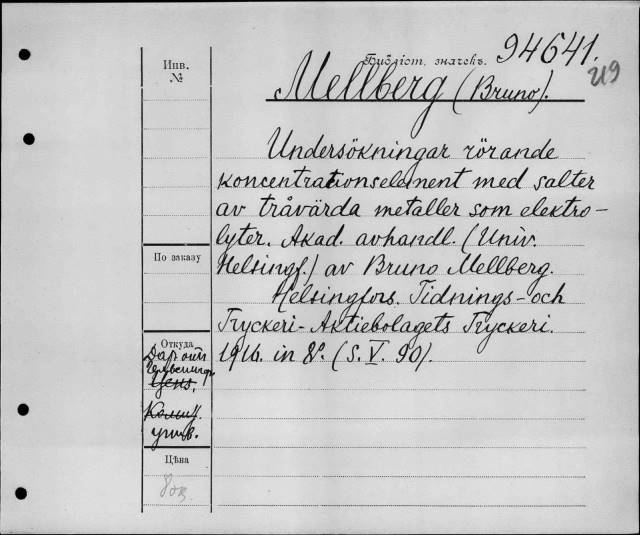 Инв.
№
Библіот. значекъ. 94641.
219
Mellberg (Bruno).
Undersökningar rörande
koncentrationselement med salter
av tråvärda metaller som elektro-
lyter. Akad. avhandl. (Univ.
Helsingf.) av Bruno Mellberg.
Helsingfors. Tidnings- och
Tryckeri-Aktiebolagets Tryckeri.
1916. in 8°. (S. V. 90).
По заказу
Откуда
Дар отъ
Гельсингф.
Ценз.
унив.
Цѣна